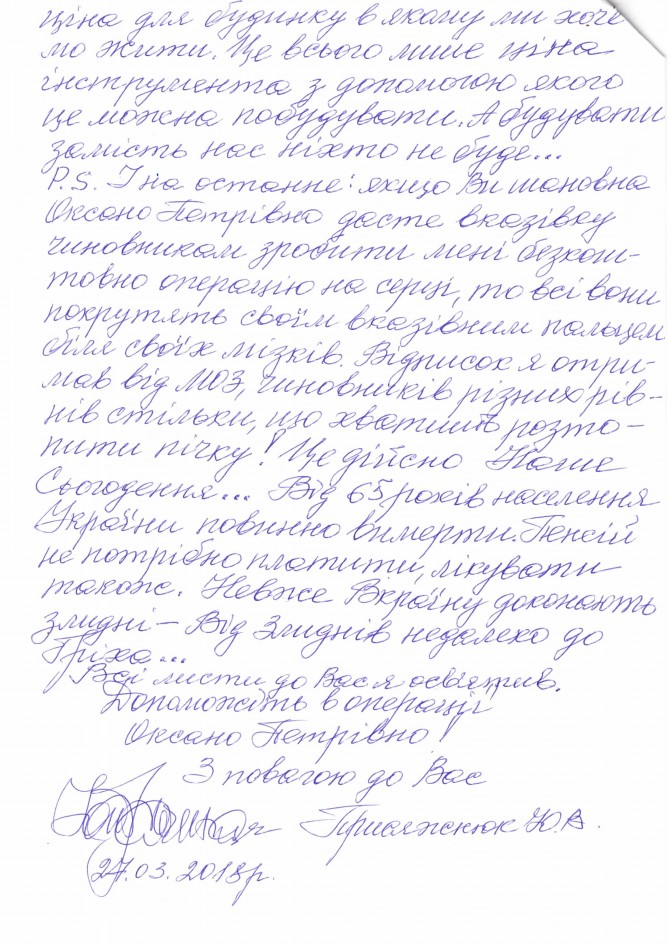 ціна для будинку в якому ми хоче
мо жити. Це всього лише ціна
інструмента з допомогою якого
це можна побудувати. А будувати
замість нас ніхто не буде...
P.S. І на останнє: якщо Ви шановна
Оксано Петрівно дасте вказівку
чиновникам зробити мені безкош-
товно операцію на серці, то всі вони
покрутять своїм вказівним пальцем
біля своїх мізків. Відписок я отри-
мав від МОЗ, чиновників різних рів-
нів стільки, що хватит розто-
пити пічку! Це дійсно Наше
Сьогодення... Від 65 років населення
України повинно вимерти. Пенсій
не потрібно платити, лікувати
також. Невже Вкраїну доконають
злидні – Від Злиднів недалеко до
Гріха...
Всі листи до Вас я освятив.
Допоможіть в операції
Оксано Петрівно!
З повагою до Вас
Присяжнюк Ю.В.
27.03.2018р.